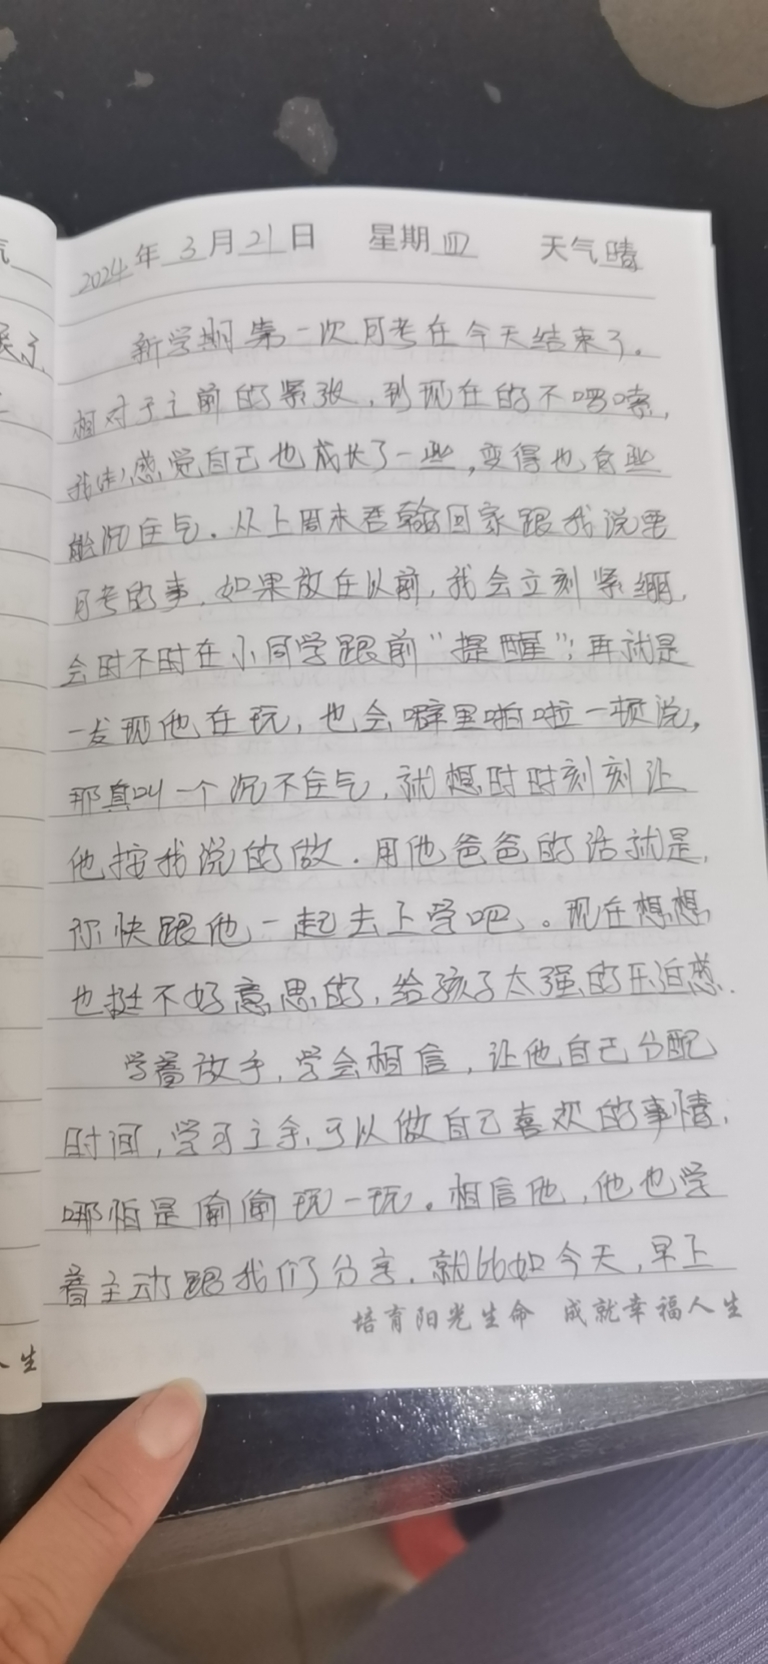 气
2024年3月21日 星期四 天气晴
新学期第一次月考在今天结束了。
相对于之前的紧张,到现在的不啰嗦,
感觉自己也成长了一些,变得也有些
能沉住气。从上周末君翰回家跟我说要
月考的事,如果放在以前,我会立刻紧绷,
会时不时在小同学跟前“提醒”;再就是
一发现他在玩,也会噼里啪啦一顿说,
那真叫一个沉不住气,就想时时刻刻让
他按我说的做。用他爸爸的话就是,
你快跟他一起去上学吧。现在想想
也挺不好意思的,给孩子太强的压迫感。
学着放手,学会相信,让他自己分配
时间,学习之余,可以做自己喜欢的事情,
哪怕是偷偷玩一玩。相信他,他也学
着主动跟我们分享。就比如今天,早上
培育阳光生命 成就幸福人生
人生